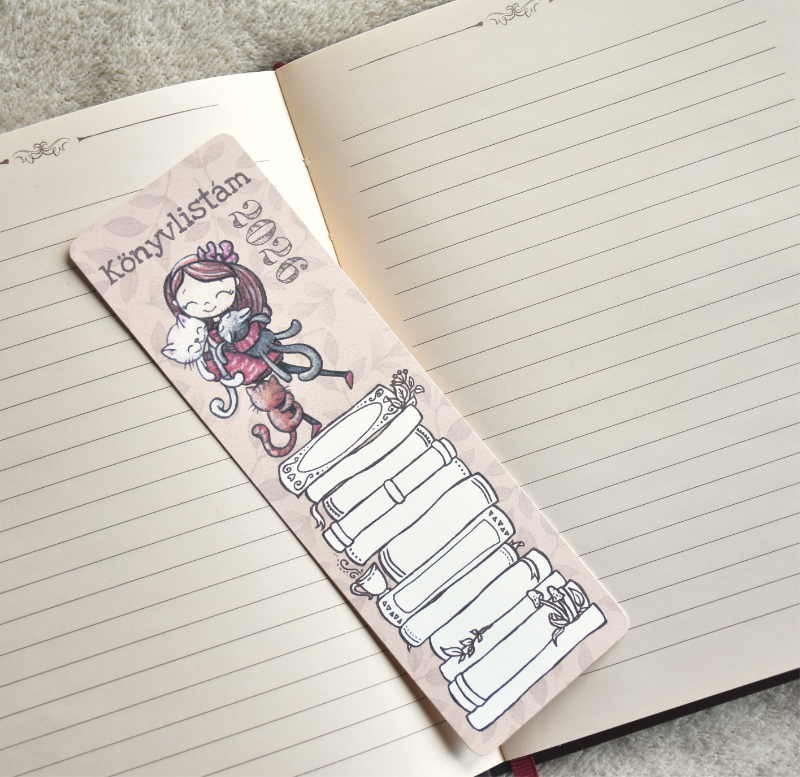 Könyvlistám
2026